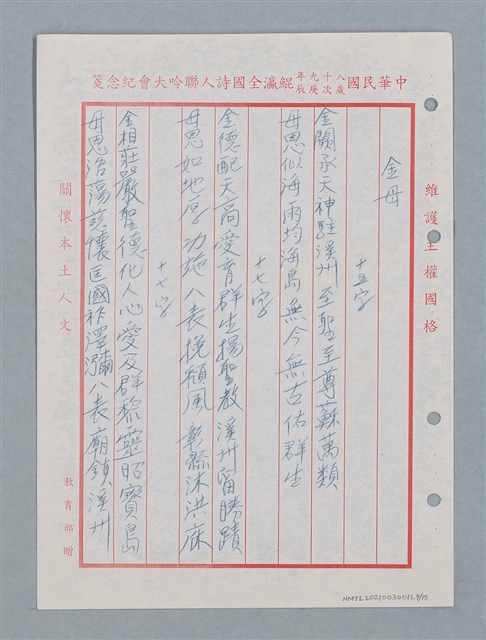 中華民國八十九年歲次庚辰鯤瀛全國詩人聯吟大會紀念箋
維護主權國格
金母
十五字
金闕承天神駐溪州至聖至尊蘇萬類
母恩似海雨均海島無今無古佑群生
十七字
金德配天高愛育群生揚聖教溪州留勝蹟
母恩如地厚功施八表挽頹風彰縣沐洪庥
十七字
金相莊嚴聖德化人心愛及群黎靈昭寶島
母恩浩蕩慈懷匡國祚澤瀰八表廟鎮溪州
關懷本土人文
教育部贈
NMTL20210030011.9/15